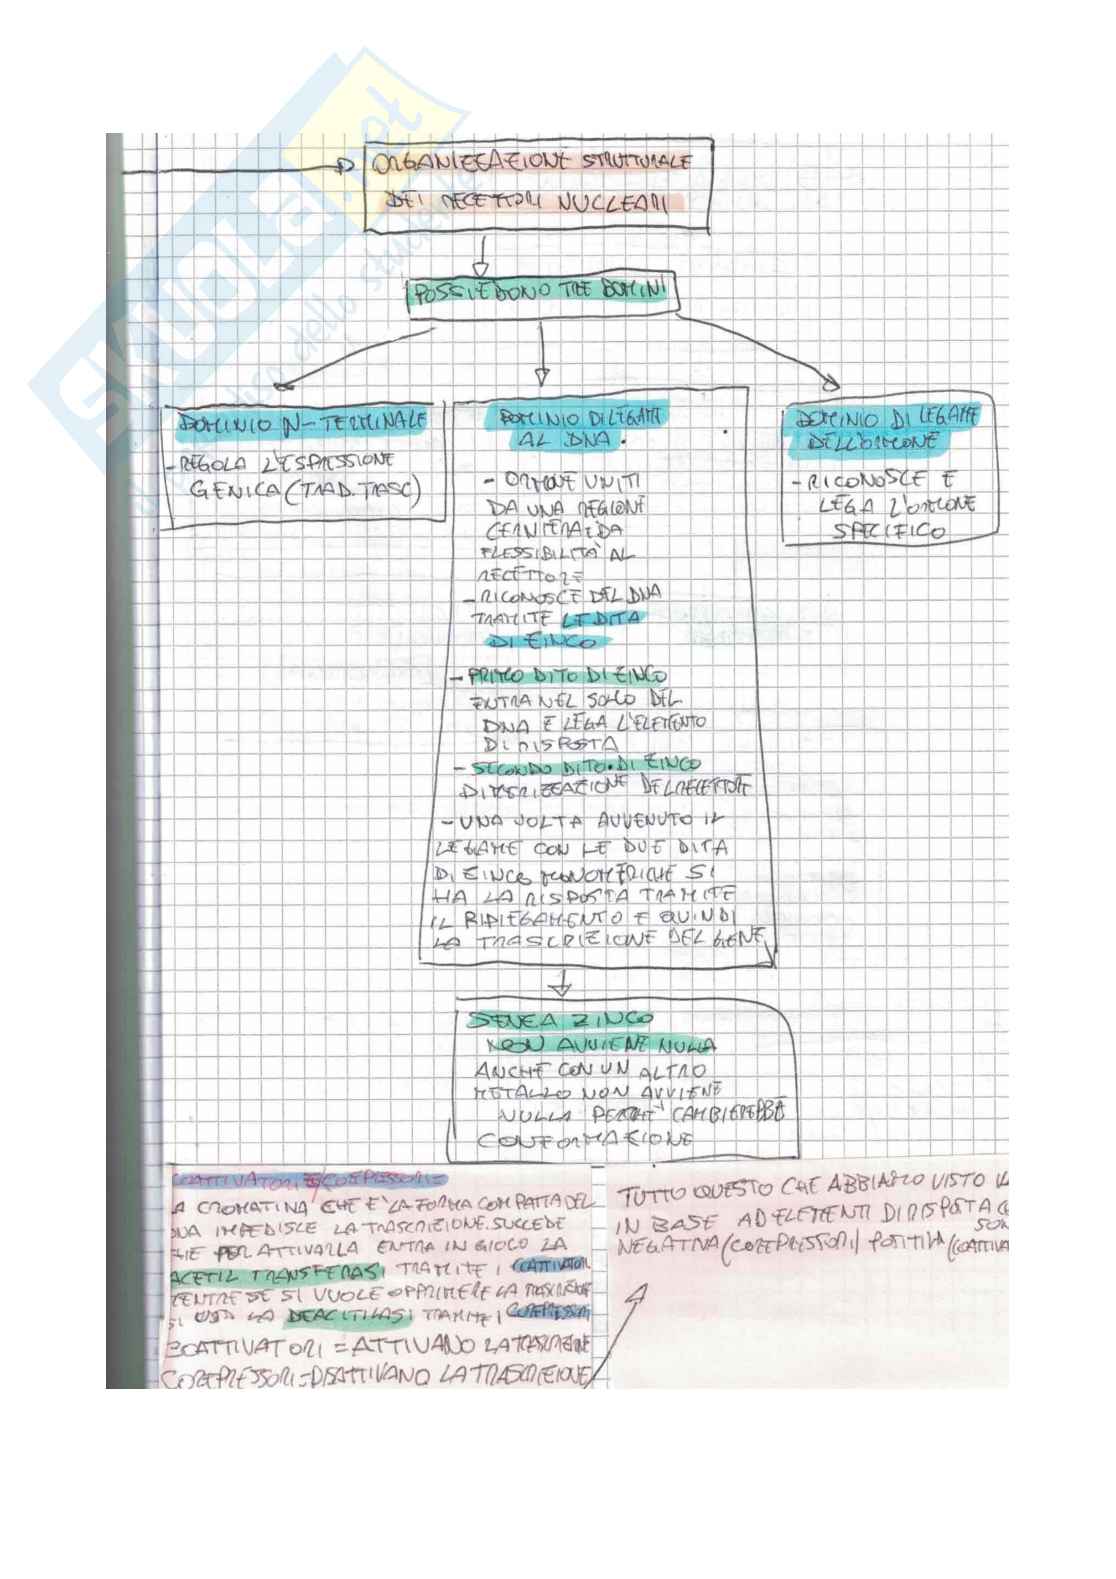 ORGANIZZAZIONE STRUTTURALE
DEI RECETTORI NUCLEARI
POSSIEDONO TRE DOMINI
DOMINIO N-TERMINALE
- REGOLA L'ESPRESSIONE
GENICA (TRAD. TRASC)
DOMINIO DI LEGAME
AL DNA.
- ORMONE UNITI
DA UNA REGIONE
CERNIERA: DA
FLESSIBILITA' AL
RECETTORE
- RICONOSCE DEL DNA
TRAMITE LE DITA
DI ZINCO
- PRIMO DITO DI ZINCO
ENTRA NEL SOLCO DEL
DNA E LEGA L'ELEMENTO
DI RISPOSTA
- SECONDO DITO DI ZINCO
DIMERIZZAZIONE DEL RECETTORE
- UNA VOLTA AVVENUTO IL
LEGAME CON LE DUE DITA
DI ZINCO MONOMERICHE SI
HA LA RISPOSTA TRAMITE
IL RIPIEGAMENTO E QUINDI
LA TRASCRIZIONE DEL GENE
DOMINIO DI LEGAME
DELL'ORMONE
- RICONOSCE E
LEGA L'ORMONE
SPECIFICO
SENZA ZINCO
NON AVVIENE NULLA
ANCHE CON UN ALTRO
METALLO NON AVVIENE
NULLA PERCHE' CAMBIEREBBE
CONFORMAZIONE
COATTIVATORI E COREPRESSORI
LA CROMATINA CHE E' LA FORMA COMPATTA DEL
DNA IMPEDISCE LA TRASCRIZIONE. SUCCEDE
CHE PER ATTIVARLA ENTRA IN GIOCO LA
ACETIL TRANSFERASI TRAMITE I COATTIVATORI
MENTRE SE SI VUOLE OPPRIMERE LA TRASCRIZIONE
SI USA LA DEACITILASI TRAMITE I COREPRESSORI
COATTIVATORI = ATTIVANO LA TRASCRIZIONE
COREPRESSORI = DISATTIVANO LA TRASCRIZIONE
TUTTO QUESTO CHE ABBIAMO VISTO
IN BASE AD ELEMENTI DI RISPOSTA
SON
NEGATIVA (COREPRESSORI) POSITIVA (COATTIVA
SKUOLA.net
dello studente